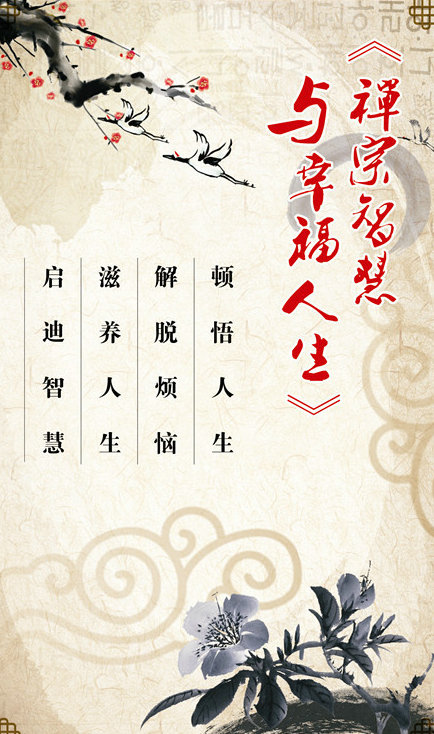 《禪宗智慧
与幸福人生》
顿悟人生
解脱烦恼
滋养人生
启迪智慧